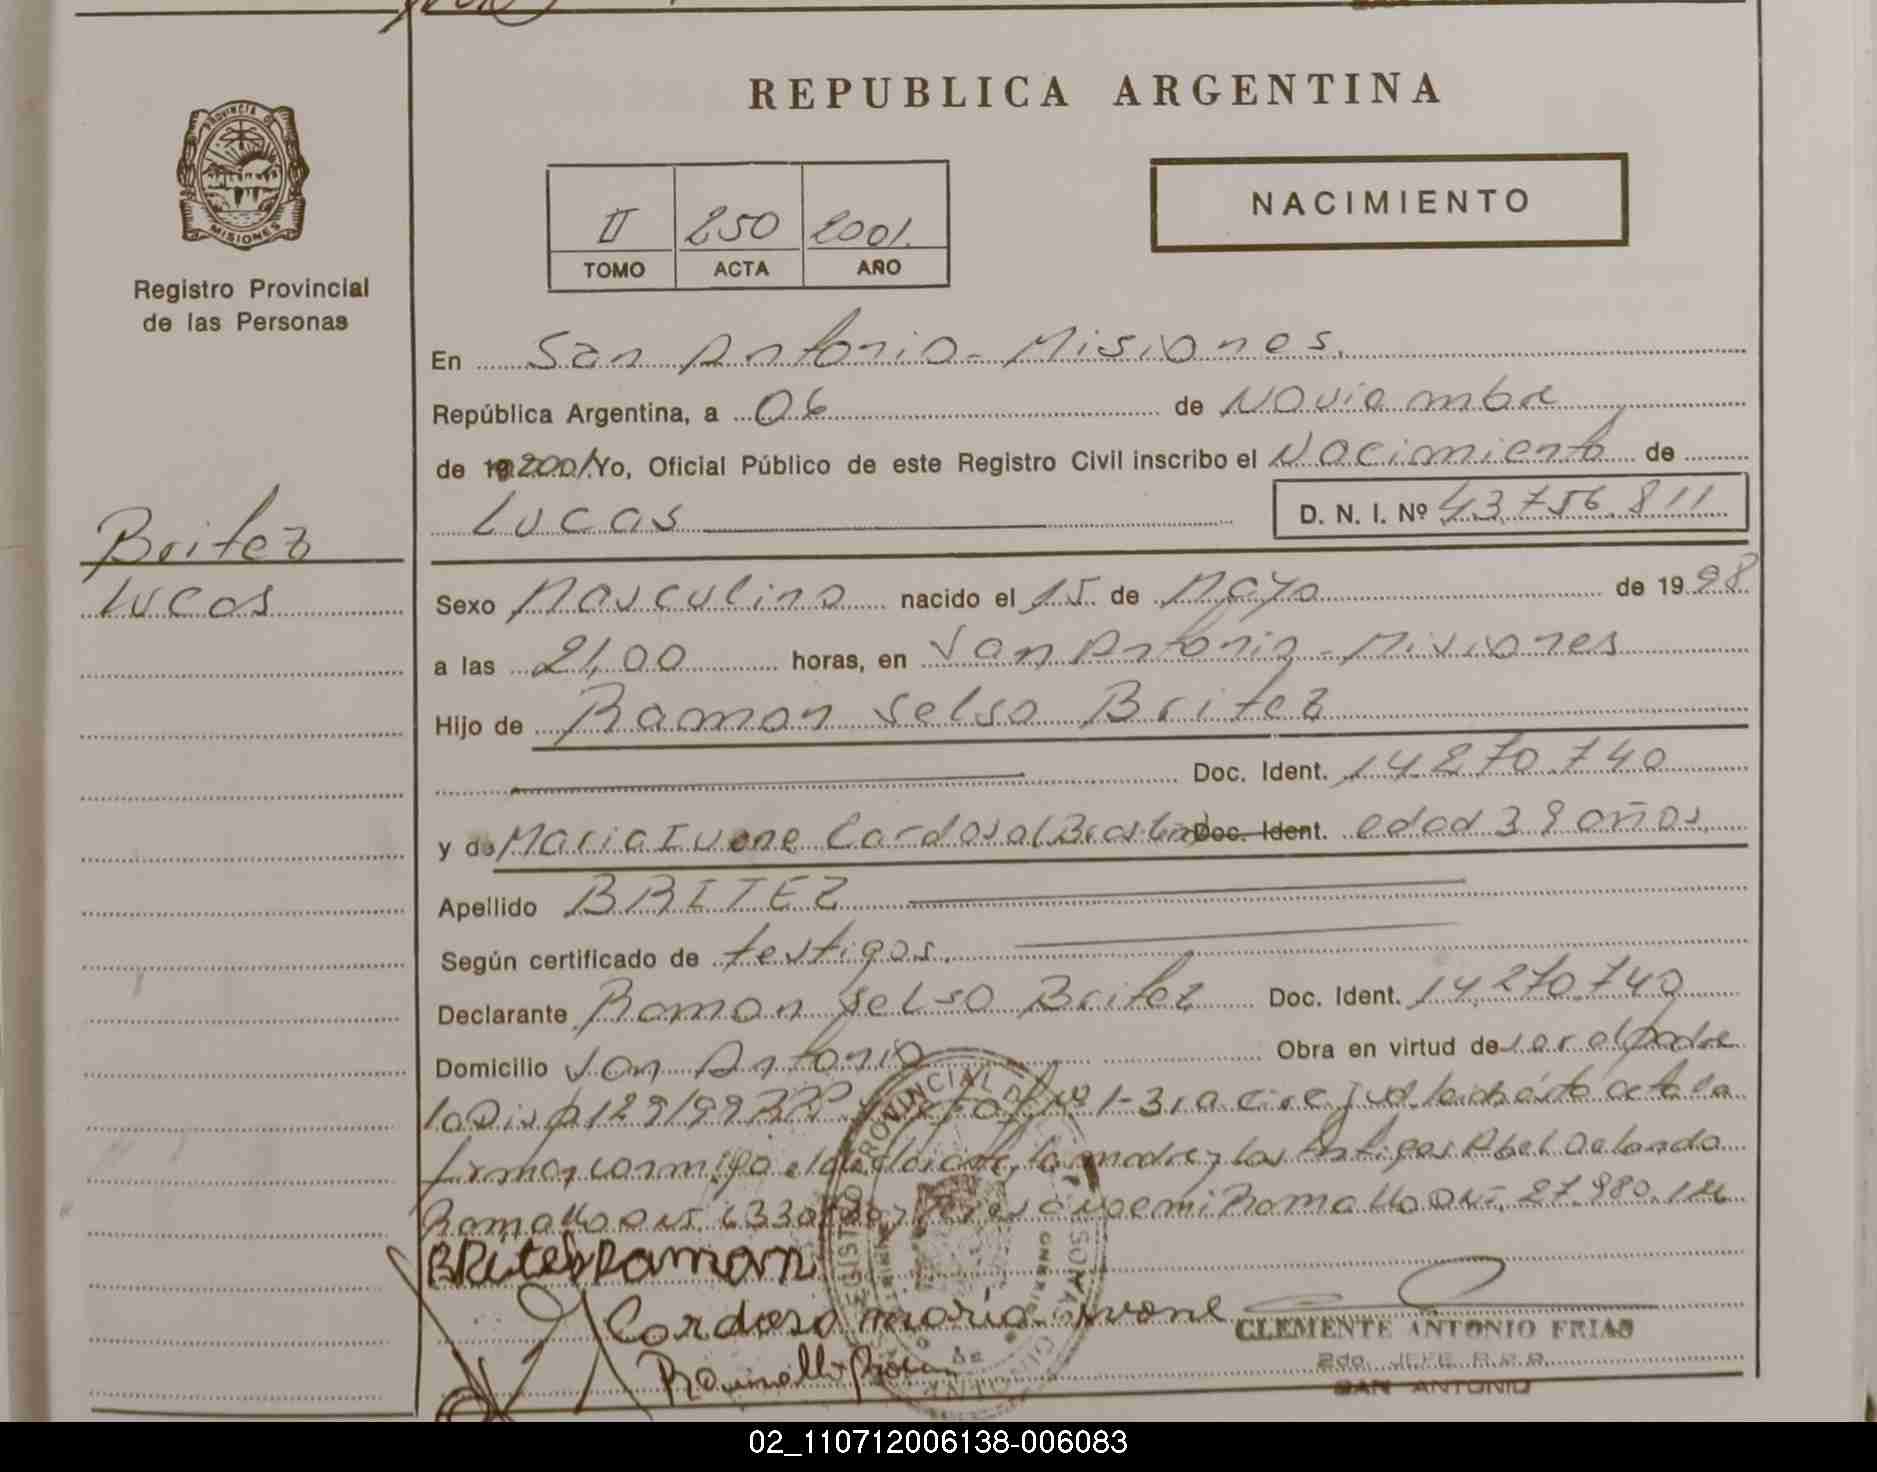 REPUBLICA ARGENTINA
PROVINCIA DE
MISIONES
Registro Provincial
de las Personas
II 250 2001.
TOMO ACTA AÑO
NACIMIENTO
En San Antonio - Misiones.
República Argentina, a 06 de Noviembre
de 19 2001. Yo, Oficial Público de este Registro Civil inscribo el Nacimiento de
Lucas D. N. I. Nº 43.756.811
Britez
Lucas
Sexo Masculino nacido el 15 de Mayo de 1998
a las 21,00 horas, en San Antonio - Misiones
Hijo de Ramon Selso Britez
Doc. Ident. 14.270.740
y de Maria Ivone Cardoso Doc. Ident. edad 39 años.
Apellido BRITEZ
Según certificado de testigos.
Declarante Ramon Selso Britez Doc. Ident. 14.270.740
Domicilio San Antonio Obra en virtud de ser el padre
la Disp 129/99 Nº 1-3ra circ Jud.
firman conmigo el declarante, la madre y los testigos Abel Orlando
Ramallo DNI Noemi Ramallo DNI. 27.980.
BRitez Ramon
Cardoso maria ivone
CLEMENTE ANTONIO FRIAS
2do. JEFE R.P.P.
SAN ANTONIO
02_110712006138-006083